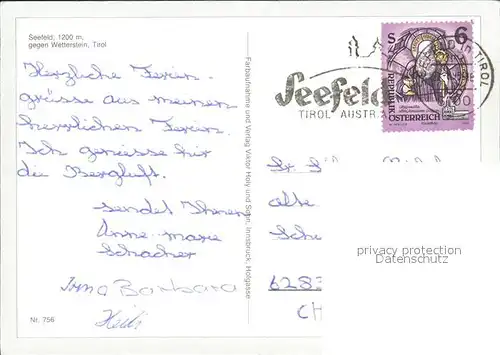 Seefeld, 1200 m,
gegen Wetterstein, Tirol
Herzliche Ferien-
grüsse aus meinen
herrlichen Ferien.
Ich geniesse hir
die Bergluft.
sendet Ihnen
Anne-marie
Schacher
Irma Barbara
Heidi
Nr. 756
Farbaufnahme und Verlag Viktor Holy und Sohn, Innsbruck, Hofgasse
S 6
REPUBLIK
ÖSTERREICH
TIROL
Seefeld
TIROL AUSTR
alte
6283
CH
privacy protection
Datenschutz